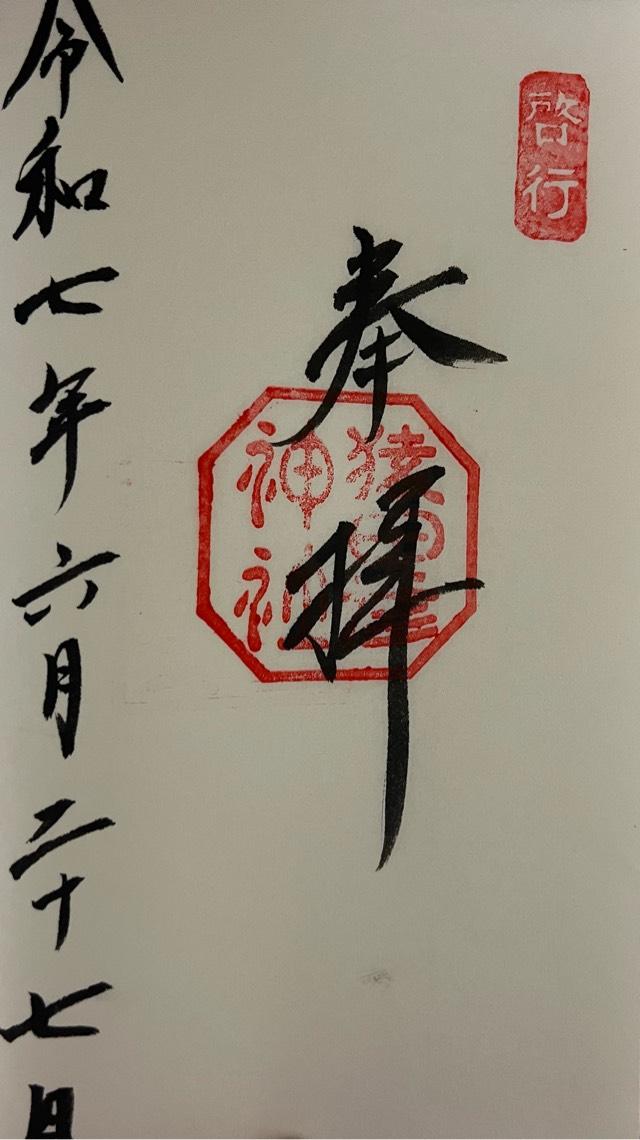 啓行
奉拝
猿田彦
神社
令和七年六月二十七日